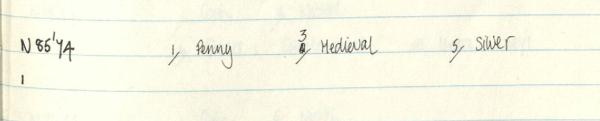 N85'74 1/ Penny 3/ Medieval 5/ Silver
1